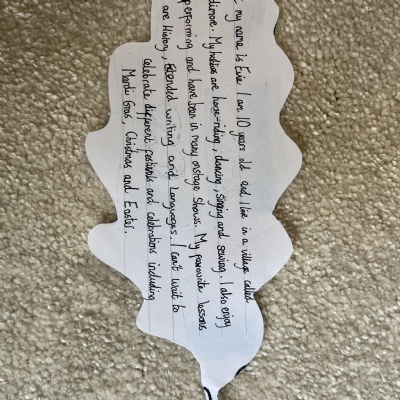 my name is Evie I am 10 years old and I live in a village called
My hobbies are horse-riding, dancing, singing and sewing. I also enjoy
performing and have been in many onstage shows. My favourite lessons
are History, Extended writing and Languages. I can't wait to
celebrate different festivals and celebrations including
Mardi Gras, Christmas and Easter.